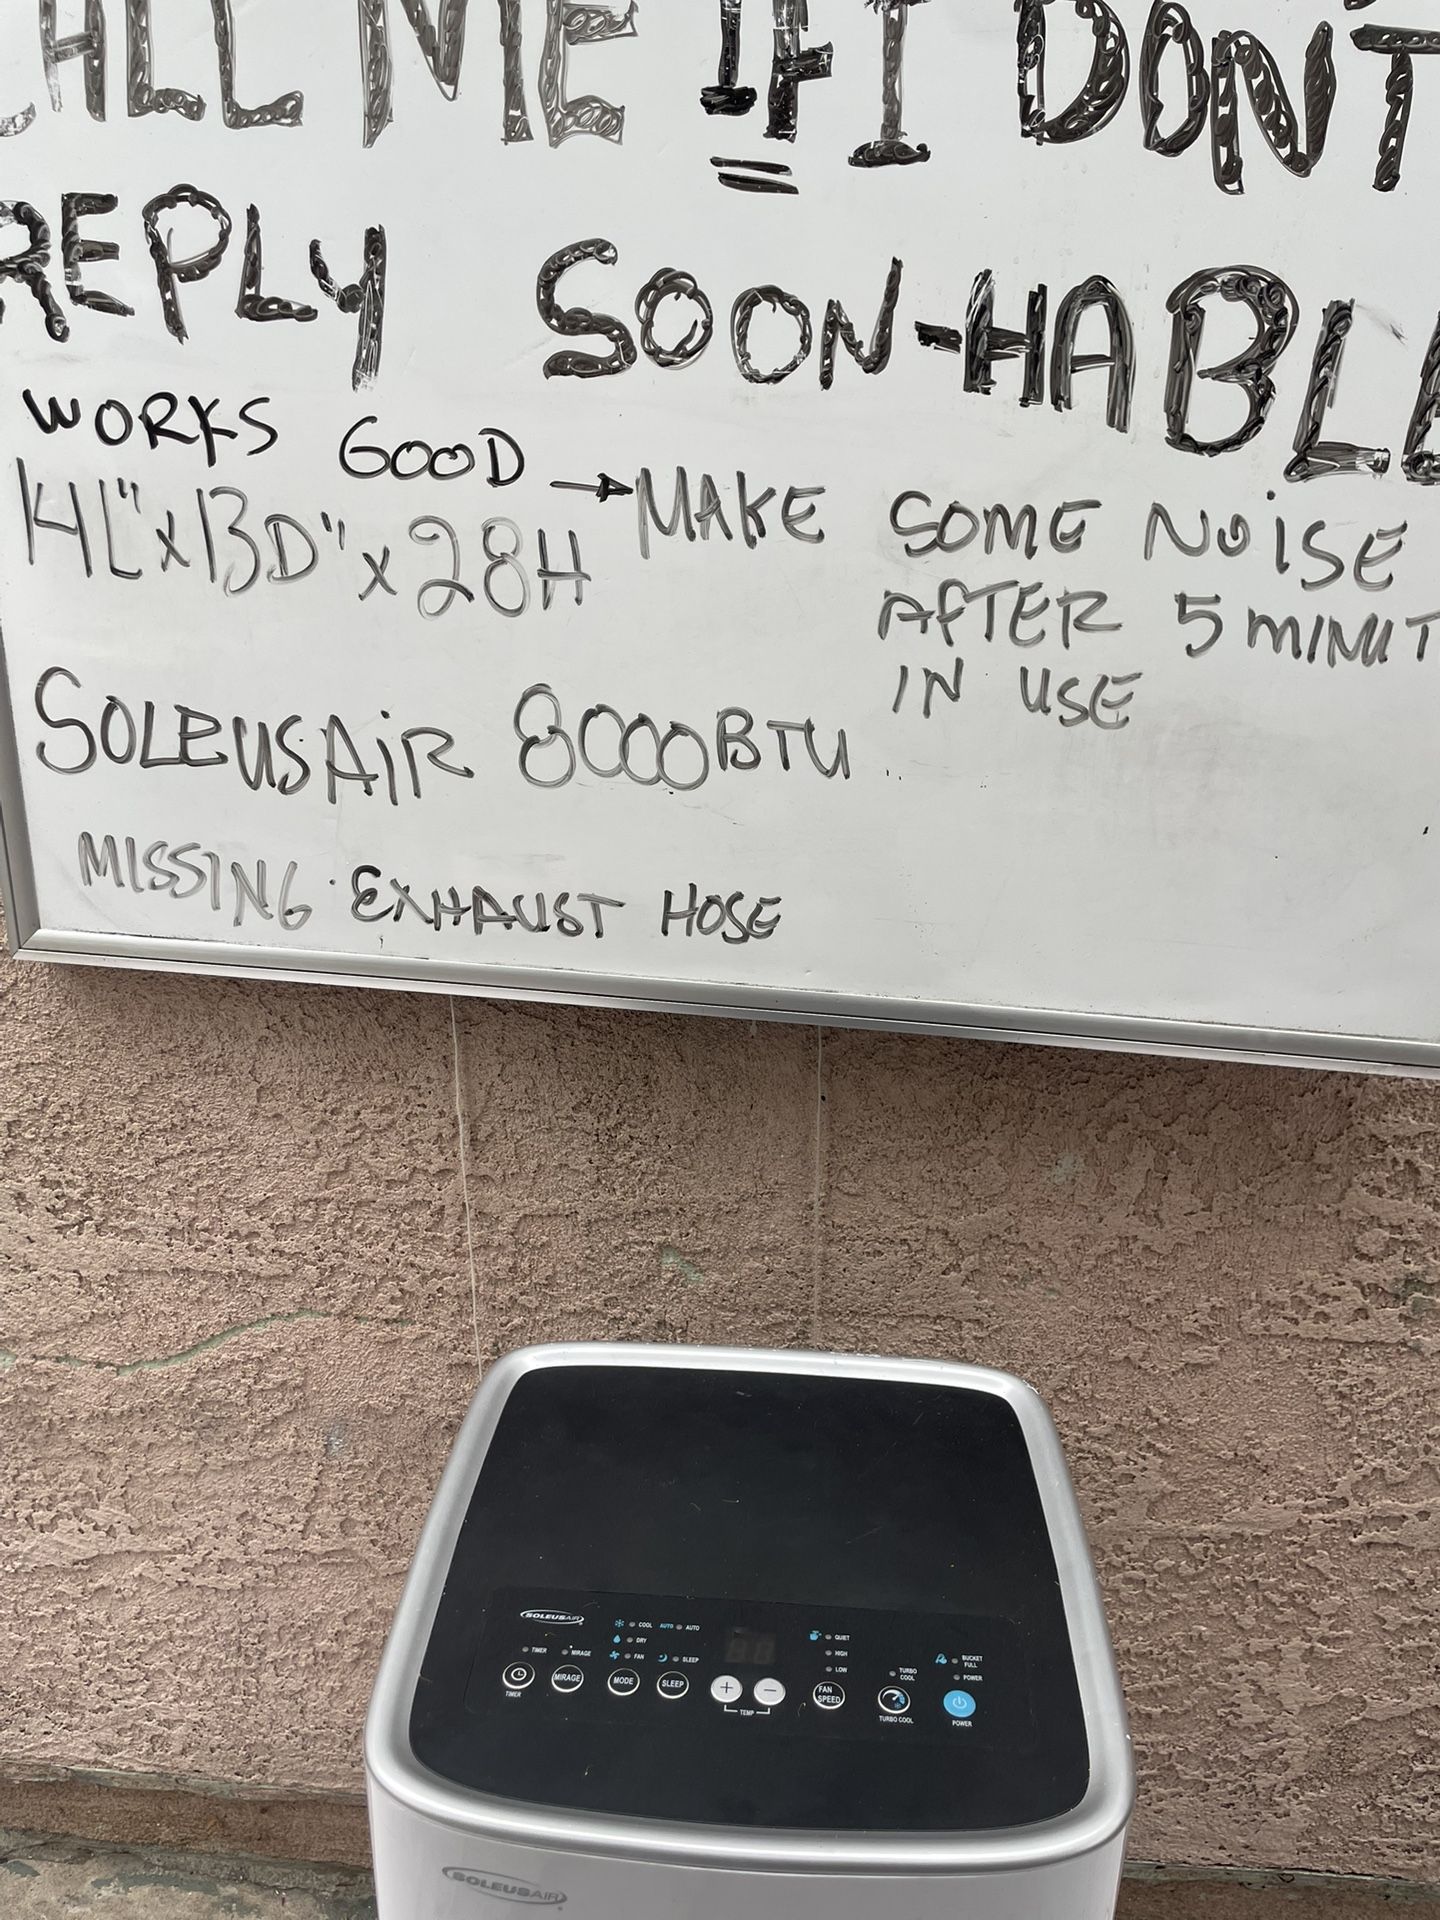 CALL ME IF I DON'T
REPLY SOON-HABLE
WORKS GOOD → MAKE SOME NOISE
14L"x13D"x28H
AFTER 5 MINUT
IN USE
SOLEUSAIR 8000BTU
MISSING EXHAUST HOSE
SOLEUSAIR
COOL AUTO AUTO
DRY
FAN SLEEP
TIMER MIRAGE
MIRAGE MODE SLEEP
TIMER
88
+ −
TEMP
QUIET
HIGH
LOW
FAN SPEED
TURBO COOL
TURBO COOL
BUCKET FULL
POWER
POWER
SOLEUSAIR